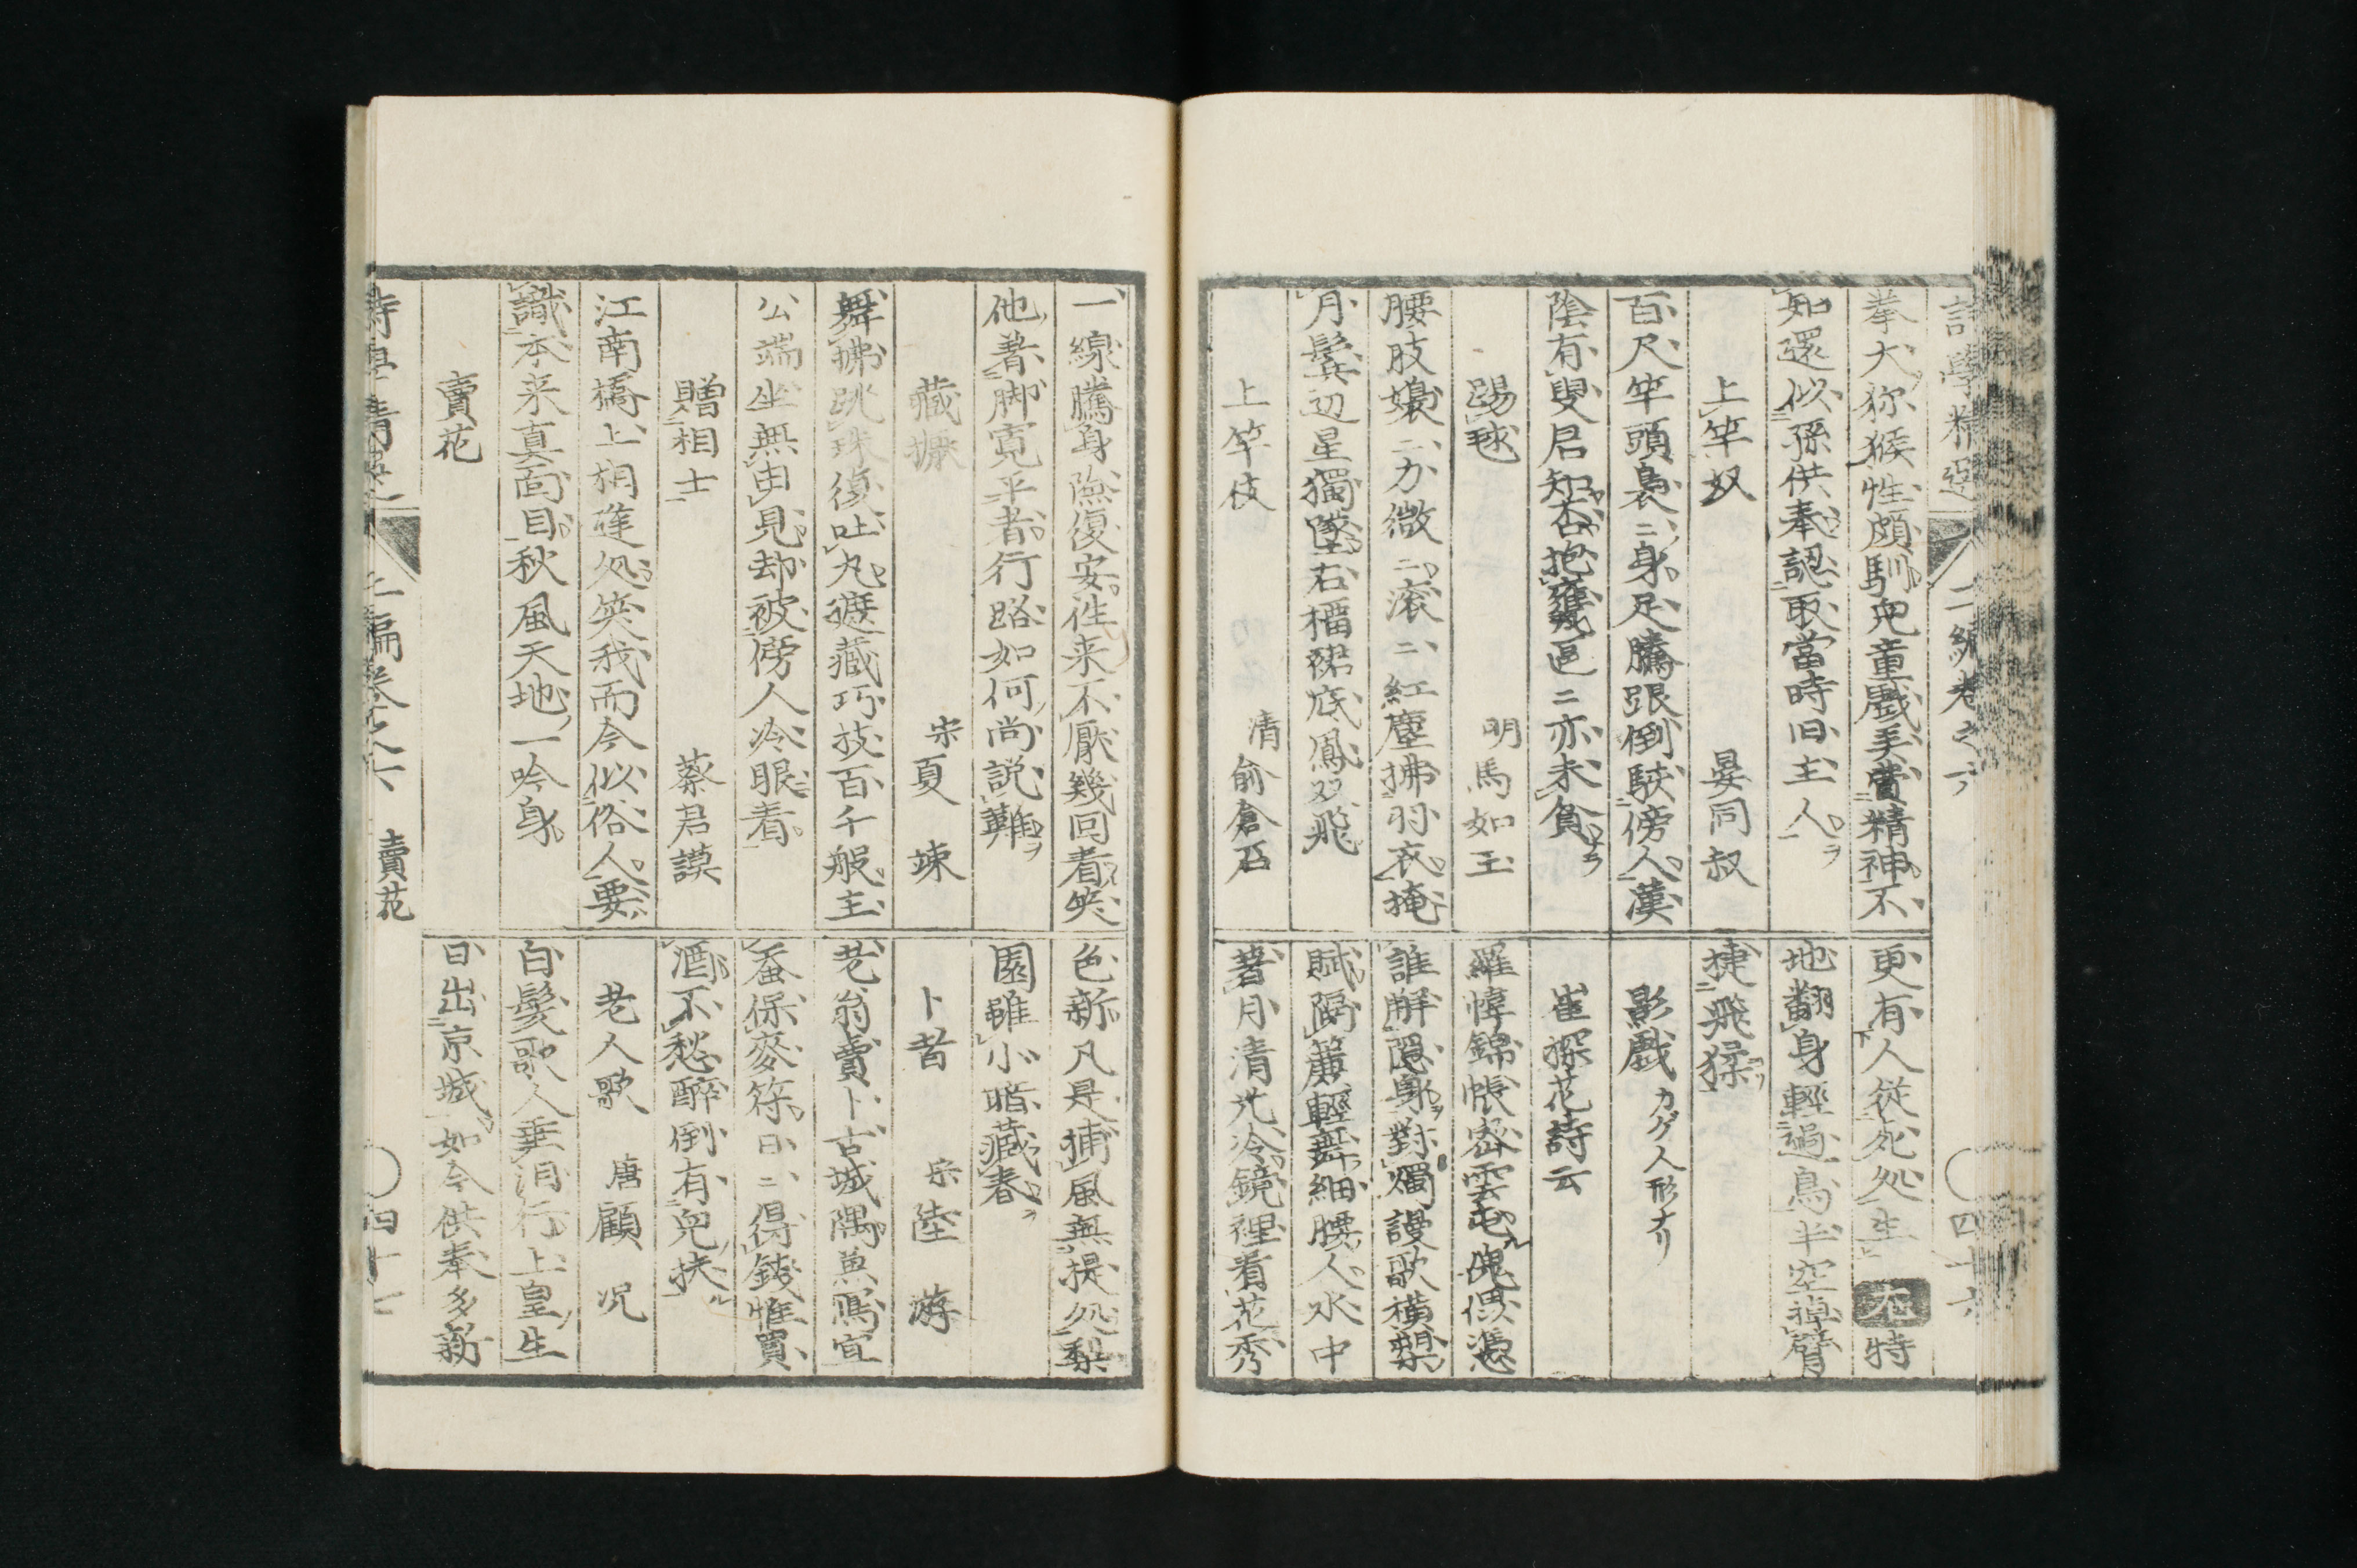 詩學精選 二編卷之六 四十六
拳大猕猴性頗馴児童戲手費精神不
知還似孫供奉認取當時旧主人
上竿奴 晏同叔
百尺竿頭裊ニ身足騰跟倒駭傍人漢
陰有叟君知否抱甕區ニ亦未貧
踢毬 明馬如玉
腰肢嬝ニ力微ニ滚ニ紅塵拂羽衣掩
月鬂辺星獨墜石榴裙底鳳双飛
上竿伎 清俞倉石
更有人從死処生 元 特
地翻身輕過鳥半空掉臂
捷飛猱
影戲 カゲ人形ナリ
崔探花詩云
羅幃錦帳密雲屯傀儡憑
誰解隱身對燭謾歌橫槊
賦隔簾輕舞細腰人水中
著月清光冷鏡裡看花秀
一線騰身險復安徃来不厭幾囘看笑
他著脚寬平者行路如何尚説難
藏擫 宋夏竦
舞拂跳珠復吐丸遮藏巧技百千般主
公端坐無由見却被傍人冷眼看
贈相士 蔡君謨
江南橋上相逢処笑我而今似俗人要
識本来真面目秋風天地一吟身
賣花
色新凡是捕風無提処梨
園雖小暗藏春
卜者 宋陸游
老翁賣卜古城隅兼爲宜
蚕保麥符日ニ得錢惟買
酒不愁醉倒有児扶
老人歌 唐顧况
白髮歌人垂泪行上皇生
日出京城如今供奉多新
詩學精選 二編卷之六 賣花 四十七